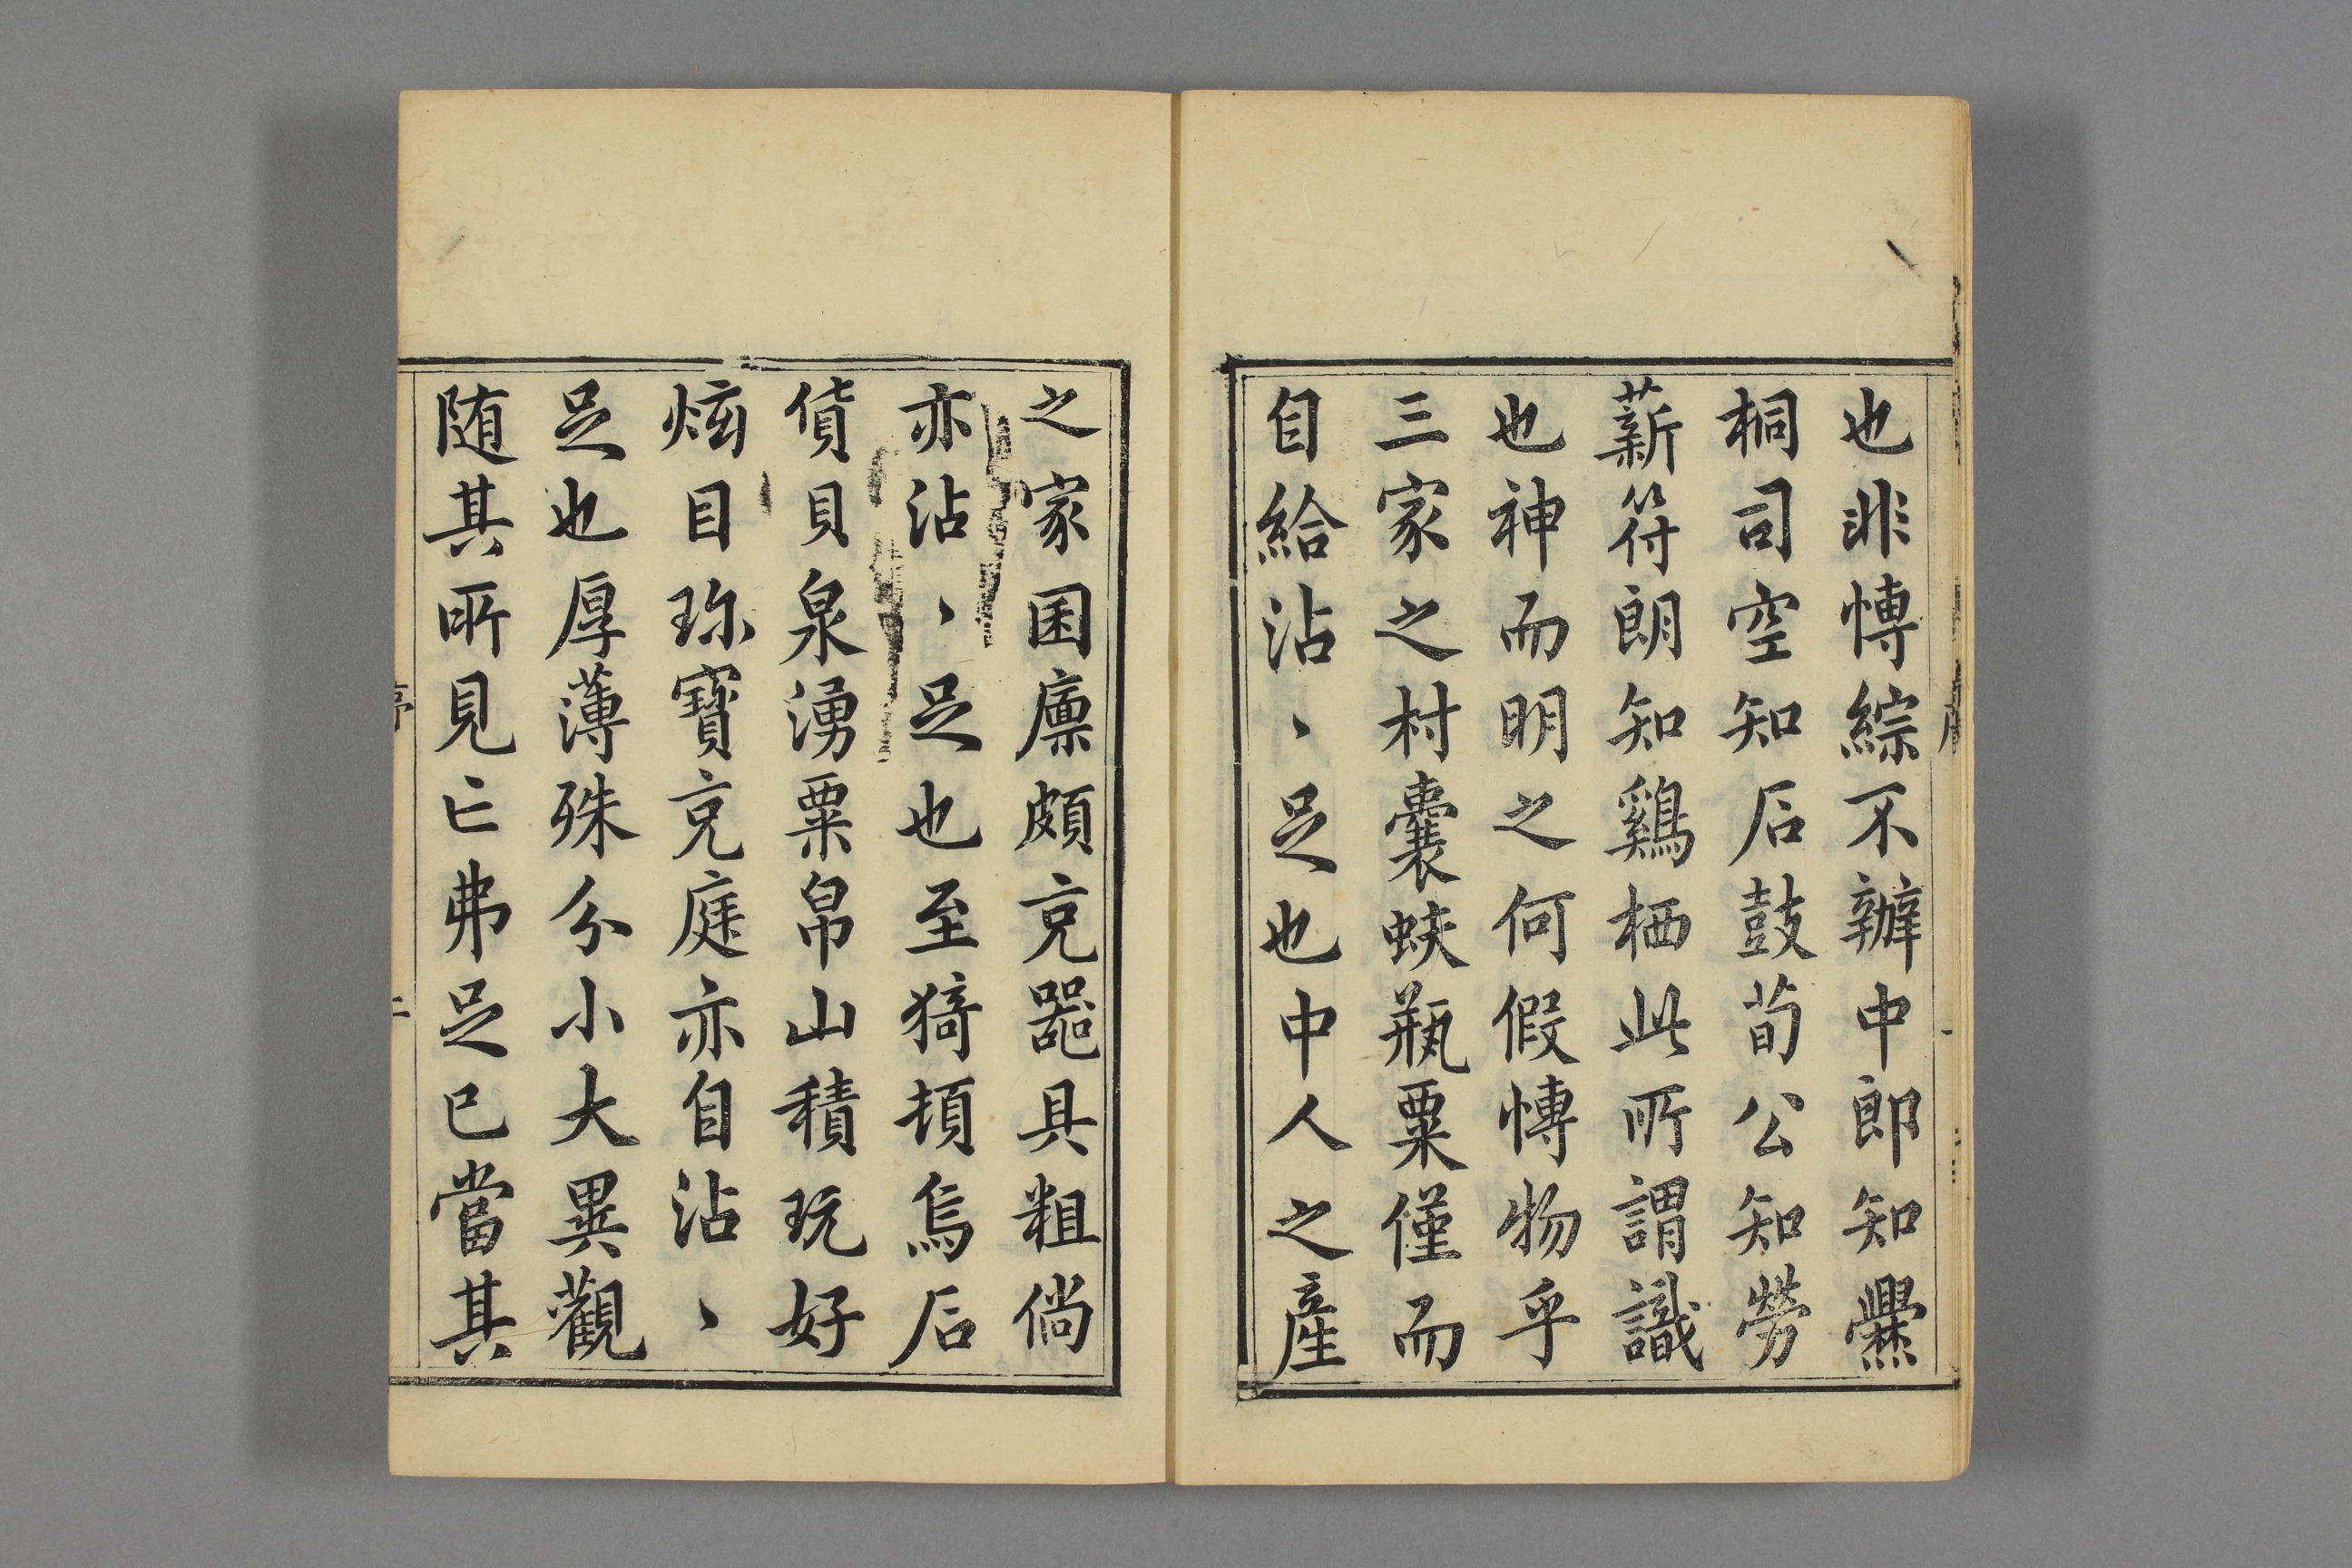 也非愽綜不辦中郎知爨
桐司空知后鼓荀公知勞
薪符朗知鷄栖此所謂識
也神而明之何假愽物乎
三家之村囊蚨瓶粟僅而
自給沾、足也中人之產
之家囷廪頗充噐具粗倘
亦沾、足也至猗頓烏后
貨貝泉湧粟帛山積玩好
炫目珎寶充庭亦自沾、
足也厚薄殊分小大異觀
随其所見亡弗足已當其